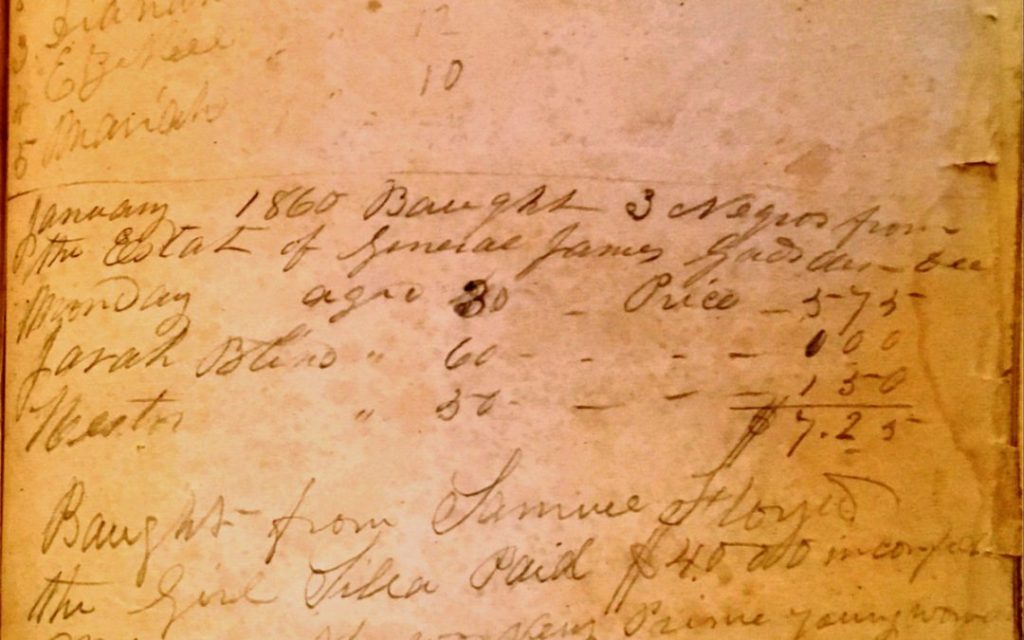 12
10
5 Mariah " "
January 1860 Baught 3 Negros from
the Estat of General James Gadsden
Monday aged 30 - Price - 575
Sarah Blind " 60 - - - - 000
Hestor " 50 - - - - 150
$7.25
Baught from Samuel Floyed
the Girl Silla Paid $400 in
Prime young